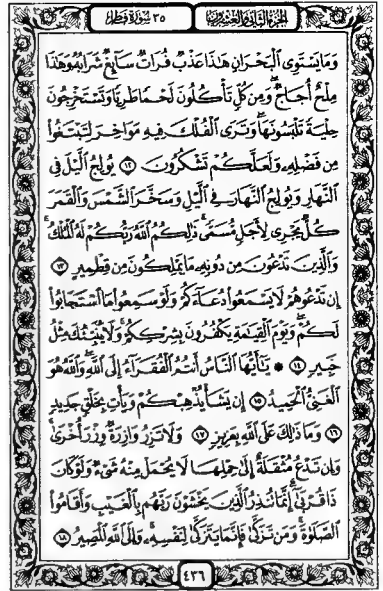 الجزء الثاني والعشرون ٣٥ سورة فاطر
وَمَا يَسْتَوِي الْبَحْرَانِ هَٰذَا عَذْبٌ فُرَاتٌ سَائِغٌ شَرَابُهُ وَهَٰذَا
مِلْحٌ أُجَاجٌ ۖ وَمِن كُلٍّ تَأْكُلُونَ لَحْمًا طَرِيًّا وَتَسْتَخْرِجُونَ
حِلْيَةً تَلْبَسُونَهَا ۖ وَتَرَى الْفُلْكَ فِيهِ مَوَاخِرَ لِتَبْتَغُوا
مِن فَضْلِهِ وَلَعَلَّكُمْ تَشْكُرُونَ ١٢ يُولِجُ اللَّيْلَ فِي
النَّهَارِ وَيُولِجُ النَّهَارَ فِي اللَّيْلِ وَسَخَّرَ الشَّمْسَ وَالْقَمَرَ
كُلٌّ يَجْرِي لِأَجَلٍ مُّسَمًّى ۚ ذَٰلِكُمُ اللَّهُ رَبُّكُمْ لَهُ الْمُلْكُ ۚ
وَالَّذِينَ تَدْعُونَ مِن دُونِهِ مَا يَمْلِكُونَ مِن قِطْمِيرٍ ١٣
إِن تَدْعُوهُمْ لَا يَسْمَعُوا دُعَاءَكُمْ وَلَوْ سَمِعُوا مَا اسْتَجَابُوا
لَكُمْ ۖ وَيَوْمَ الْقِيَامَةِ يَكْفُرُونَ بِشِرْكِكُمْ ۚ وَلَا يُنَبِّئُكَ مِثْلُ
خَبِيرٍ ١٤ ۞ يَا أَيُّهَا النَّاسُ أَنتُمُ الْفُقَرَاءُ إِلَى اللَّهِ ۖ وَاللَّهُ هُوَ
الْغَنِيُّ الْحَمِيدُ ١٥ إِن يَشَأْ يُذْهِبْكُمْ وَيَأْتِ بِخَلْقٍ جَدِيدٍ
١٦ وَمَا ذَٰلِكَ عَلَى اللَّهِ بِعَزِيزٍ ١٧ وَلَا تَزِرُ وَازِرَةٌ وِزْرَ أُخْرَىٰ ۚ
وَإِن تَدْعُ مُثْقَلَةٌ إِلَىٰ حِمْلِهَا لَا يُحْمَلْ مِنْهُ شَيْءٌ وَلَوْ كَانَ
ذَا قُرْبَىٰ ۗ إِنَّمَا تُنذِرُ الَّذِينَ يَخْشَوْنَ رَبَّهُم بِالْغَيْبِ وَأَقَامُوا
الصَّلَاةَ ۚ وَمَن تَزَكَّىٰ فَإِنَّمَا يَتَزَكَّىٰ لِنَفْسِهِ ۚ وَإِلَى اللَّهِ الْمَصِيرُ ١٨
٤٣٦